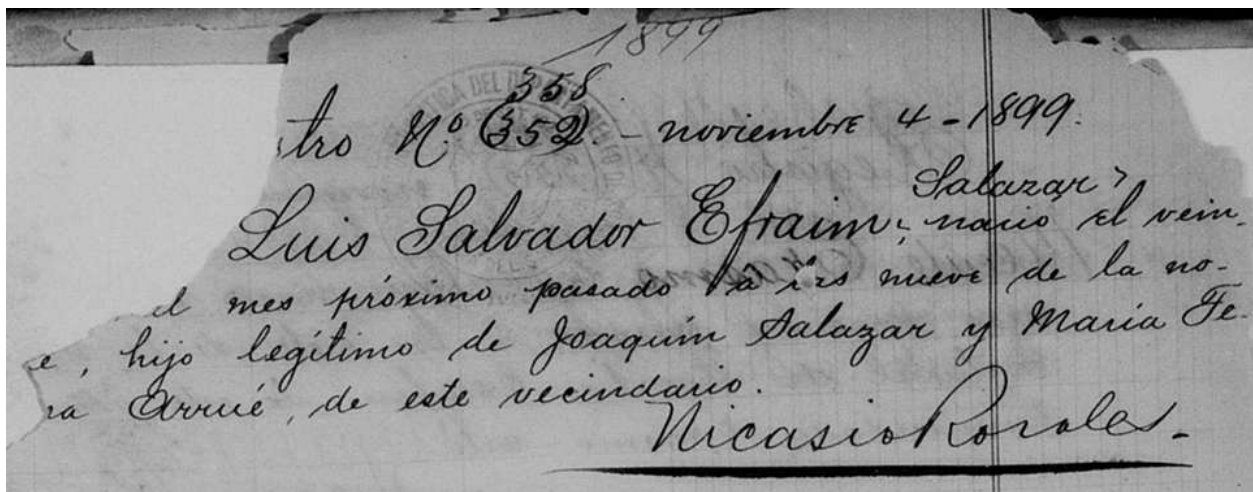 1899
358
stro Nº (352). - noviembre 4 - 1899.
Salazar
Luis Salvador Efraim; nació el vein-
el mes próximo pasado á las nueve de la no-
e, hijo legítimo de Joaquín Salazar y María Te-
ra Arrué, de este vecindario.
Nicasio Rosales.